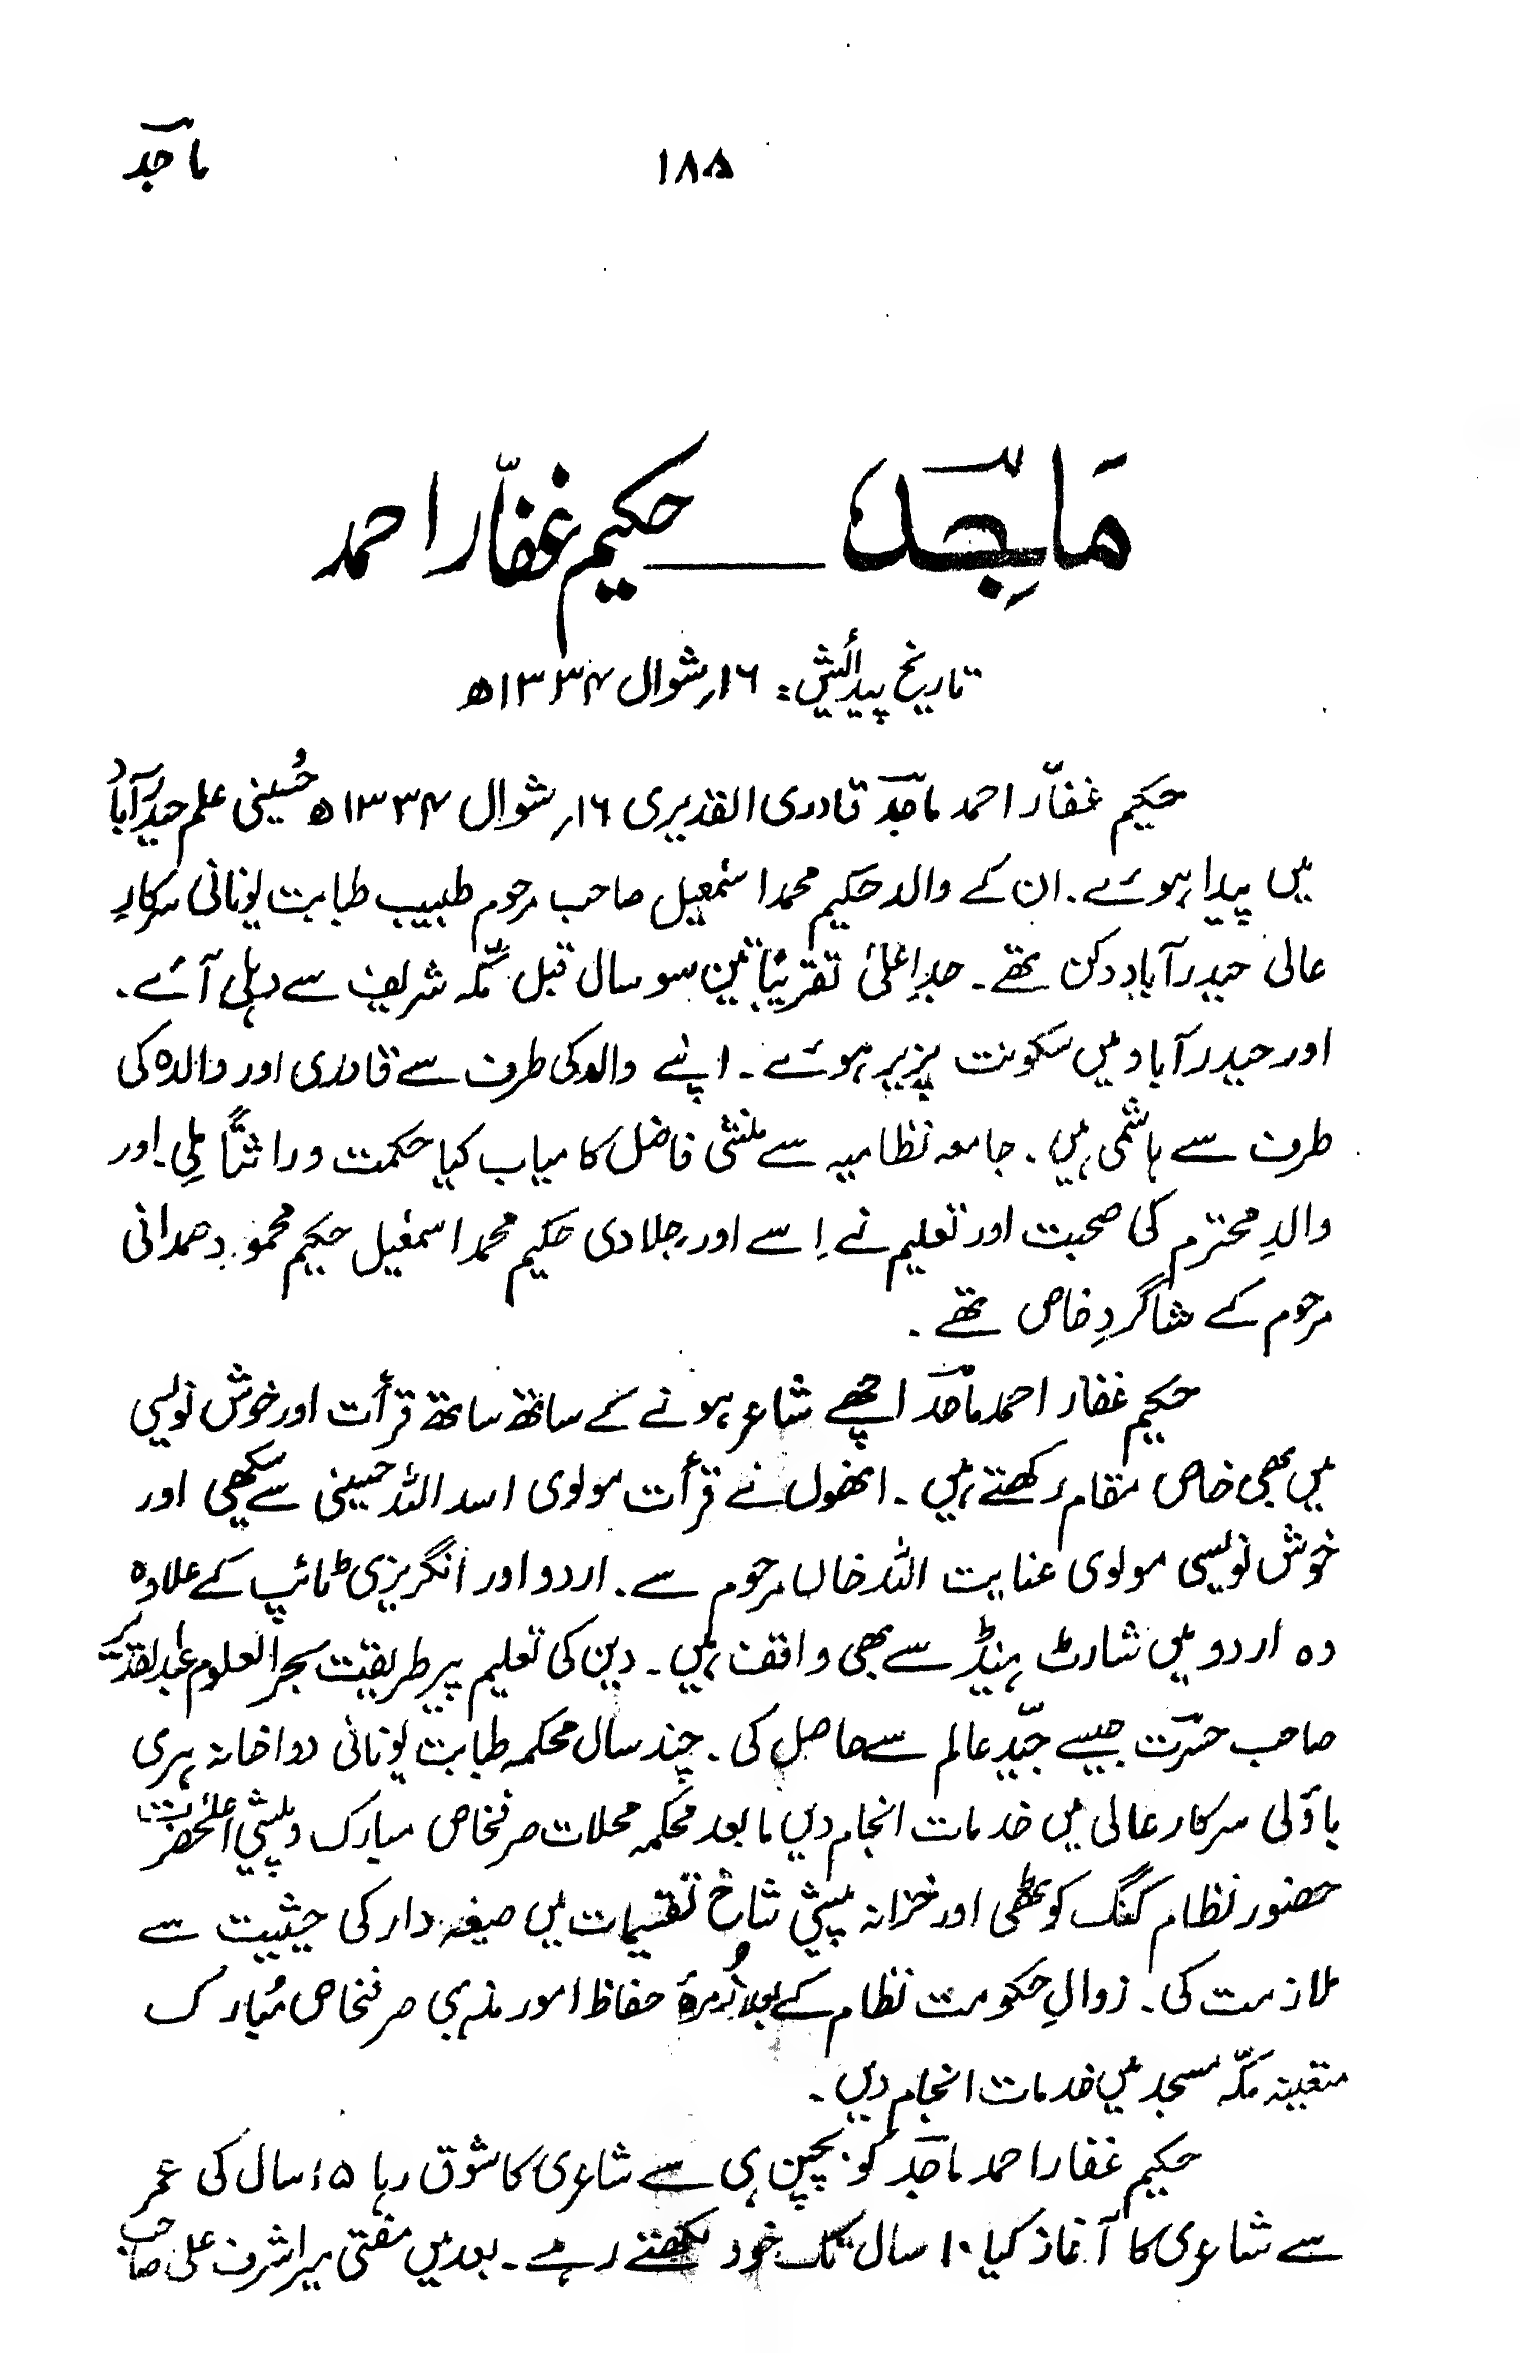 ماجد
۱۸۵
ماجد ــــ حکیم غفّار احمد
تاریخ پیدائش: ۱۶؍شوال ۱۳۳۴ھ
حکیم غفّار احمد ماجد قادری القدیری ۱۶؍ شوال ۱۳۳۴ھ حُسینی علم حیدرآباد
میں پیدا ہوئے۔ ان کے والد حکیم محمد اسمٰعیل صاحب مرحوم طبیب طبابت یونانی سرکارِ
عالی حیدرآباد دکن تھے۔ جدِ اعلیٰ تقریباً تین سو سال قبل مکّہ شریف سے دہلی آئے۔
اور حیدرآباد میں سکونت پزیر ہوئے۔ اپنے والد کی طرف سے قادری اور والدہ کی
طرف سے ہاشمی ہیں۔ جامعہ نظامیہ سے منشی فاضل کامیاب کیا حکمت وراثتاً ملی۔ اور
والدِ محترم کی صحبت اور تعلیم نے اِسے اور جِلا دی حکیم محمد اسمٰعیل حکیم محمود صمدانی
مرحوم کے شاگردِ خاص تھے۔
حکیم غفار احمد ماجد اچھے شاعر ہونے کے ساتھ ساتھ قرأت اور خوش نویسی
میں بھی خاص مقام رکھتے ہیں۔ انھوں نے قرأت مولوی اسد اللہ حسینی سے سیکھی اور
خوش نویسی مولوی عنایت اللہ خاں مرحوم سے۔ اردو اور انگریزی ٹائپ کے علاوہ
وہ اردو میں شارٹ ہینڈ سے بھی واقف ہیں۔ دین کی تعلیم پیر طریقت بحر العلوم عبدالقدیر
صاحب حسرت جیسے جیّد عالم سے حاصل کی۔ چند سال محکمہ طبابت یونانی دواخانہ ہری
باؤلی سرکار عالی میں خدمات انجام دیں مابعد محکمہ محلات صرفخاص مبارک و پیشی اعلیٰحضرت
حضور نظام کنگ کوٹھی اور خزانہ پیشی شاخ تقسیمات میں صیغہ دار کی حیثیت سے
ملازمت کی۔ زوالِ حکومت نظام کے بعد زُمرۂ حفاظ امور مذہبی صرفخاص مُبارک
متعینہ مکّہ مسجد میں خدمات انجام دیں۔
حکیم غفار احمد ماجد کو بچپن ہی سے شاعری کا شوق رہا ۱۵ سال کی عمر
سے شاعری کا آغاز کیا ۱۰ سال تک خود لکھتے رہے۔ بعد میں مفتی میر اشرف علی صاحب